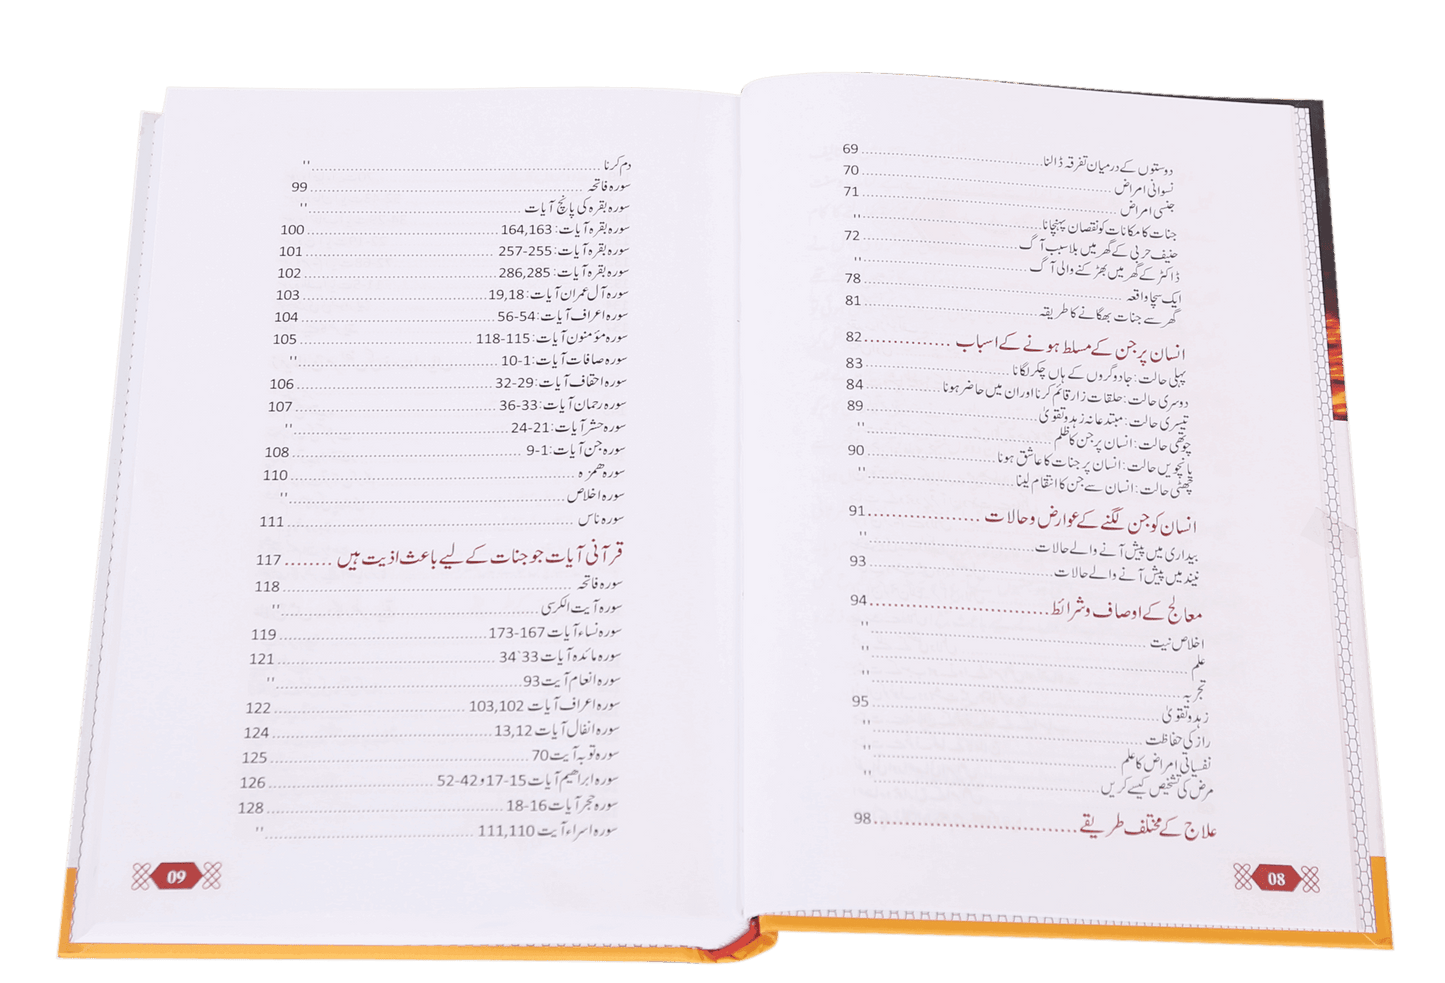 دوستوں کے درمیان تفرقہ ڈالنا ........ 69
نسوانی امراض ........ 70
جنسی امراض ........ 71
جنات کا مکانات کو نقصان پہنچانا ........ ''
حنیف حربی کے گھر میں بلا سبب آگ ........ 72
ڈاکٹر کے گھر میں بھڑکنے والی آگ ........ ''
ایک سچا واقعہ ........ 78
گھر سے جنات بھگانے کا طریقہ ........ 81
انسان پر جن کے مسلط ہونے کے اسباب ........ 82
پہلی حالت: جادوگروں کے ہاں چکر لگانا ........ 83
دوسری حالت: حلقات زار قائم کرنا اور ان میں حاضر ہونا ........ 84
تیسری حالت: مبتدعانہ زہد و تقویٰ ........ 89
چوتھی حالت: انسان پر جن کا ظلم ........ ''
پانچویں حالت: انسان پر جنات کا عاشق ہونا ........ 90
چھٹی حالت: انسان سے جن کا انتقام لینا ........ ''
انسان کو جن لگنے کے عوارض و حالات ........ 91
بیداری میں پیش آنے والے حالات ........ ''
نیند میں پیش آنے والے حالات ........ 93
معالج کے اوصاف و شرائط ........ 94
اخلاص نیت ........ ''
علم ........ ''
تجربہ ........ ''
زہد و تقویٰ ........ 95
راز کی حفاظت ........ ''
نفسیاتی امراض کا علم ........ ''
مرض کی تشخیص کیسے کریں ........ ''
علاج کے مختلف طریقے ........ 98
08
دم کرنا ........ ''
سورہ فاتحہ ........ 99
سورہ بقرہ کی پانچ آیات ........ ''
سورہ بقرہ آیات: 164,163 ........ 100
سورہ بقرہ آیات: 255-257 ........ 101
سورہ بقرہ آیات: 286,285 ........ 102
سورہ آل عمران آیات: 19,18 ........ 103
سورہ اعراف آیات: 54-56 ........ 104
سورہ مؤمنون آیات: 115-118 ........ 105
سورہ صافات آیات: 1-10 ........ ''
سورہ احقاف آیات: 29-32 ........ 106
سورہ رحمان آیات: 33-36 ........ 107
سورہ حشر آیات: 21-24 ........ ''
سورہ جن آیات: 1-9 ........ 108
سورہ همزہ ........ 110
سورہ اخلاص ........ ''
سورہ ناس ........ 111
قرآنی آیات جو جنات کے لیے باعث اذیت ہیں ........ 117
سورہ فاتحہ ........ 118
سورہ آیت الکرسی ........ ''
سورہ نساء آیات 167-173 ........ 119
سورہ مائدہ آیات 33`34 ........ 121
سورہ انعام آیت 93 ........ ''
سورہ اعراف آیات 103,102 ........ 122
سورہ انفال آیات 13,12 ........ 124
سورہ توبہ آیت 70 ........ 125
سورہ ابراھیم آیات 15-17 و 42-52 ........ 126
سورہ حجر آیات 16-18 ........ 128
سورہ اسراء آیت 111,110 ........ ''
09